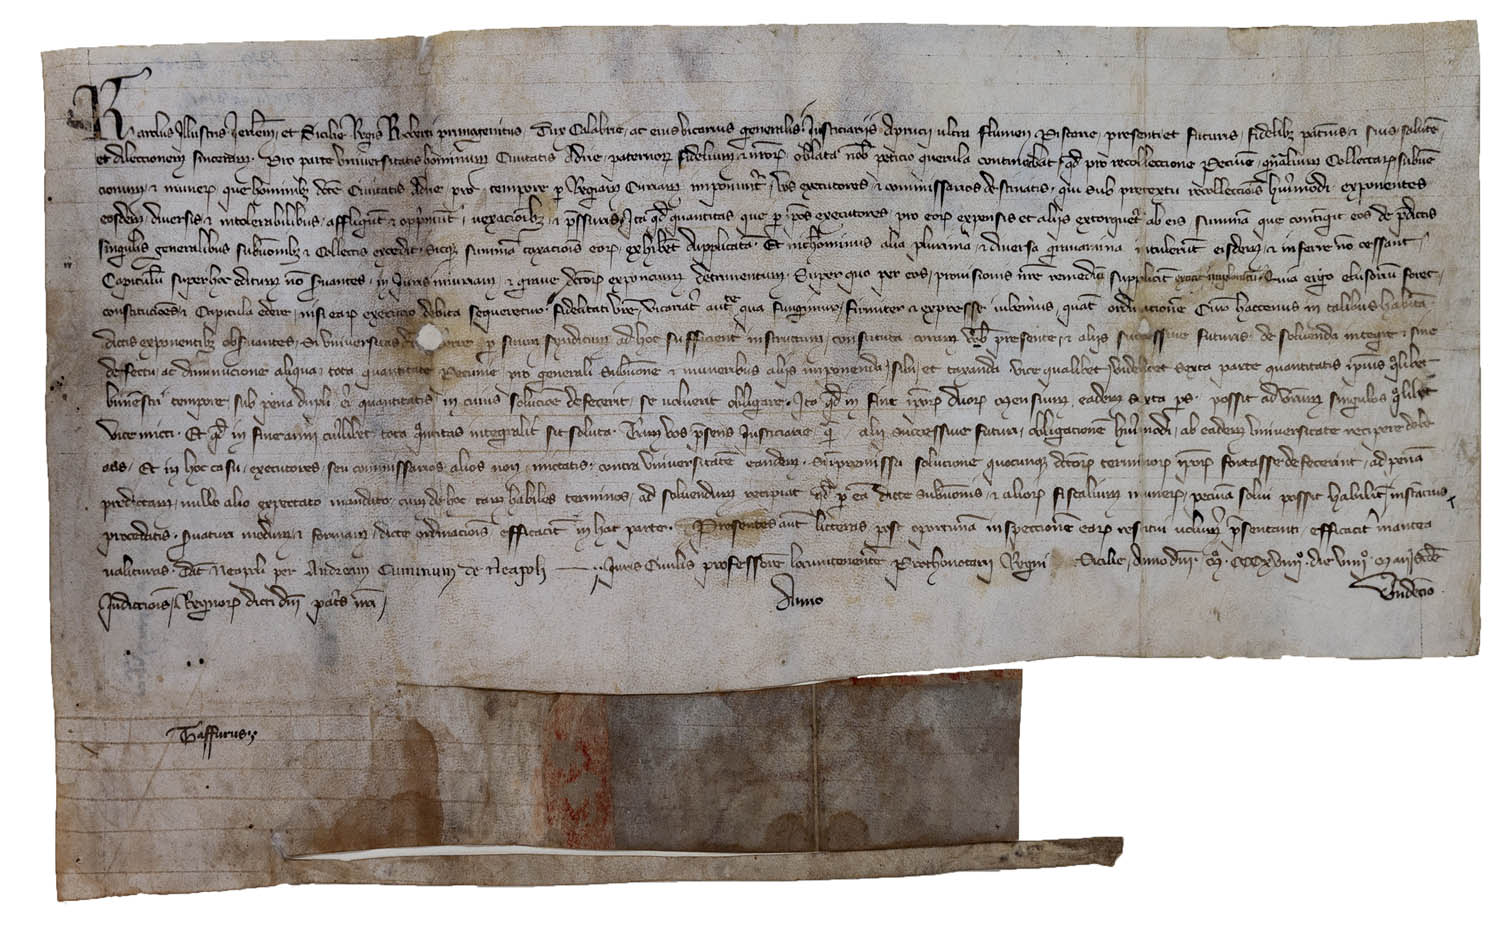 Karolus Illustris Jerlem et Sicilie Regis Roberti primogenitus Dux Calabrie ac eius vicarius generalis Justiciariis Aprucii ultra flumen Piscarie presenti et futuris fidelibus paternis et suis salutem
et dileccionem sinceram. Pro parte universitatis hominum Civitatis Adrie paternorum fidelium et nrorum oblata nob peticio querula continebat qd pro recolleccione Pecunie generalium Collectarum subven
cionum et munerum que hominibus dicte Civitatis Adrie pro tempore per Regiam Curiam imponuntur vos executores et commissarios destinatis qui sub pretextu recolleccionis huiusmodi exponentes
eosdem diversis et intolerabilibus affligunt et opprimunt vexacionibus et pressuris Ita qd quantitas que per ipsos executores pro eorum expensis et aliis extorquetur ab eis summam que contingit eos de predictis
singulis generalibus subvencionibus et Collectis excedit sicque summam taxacionis eorum exhibent dupplicatam. Et nichilominus alia plurima et diversa gravamina intulerunt eisdem et inferre non cessant
Capitulum super hoc editum non servantes in Juris iniuriam et grave dictorum exponencium detrimentum. Super quo per eos provisionis nre remedium supplicit Quia ergo elusorium foret
constituciones et Capitula edere nisi earum execucio debita sequeretur fidelitati vre vicariatus auctoritate qua fungimur firmiter et expresse iubemus quatenus ordinacionem Circa hactenus in talibus habitam
dictis exponentibus observantes Si universitas per suum syndicum ad hoc sufficienter instructum constituta coram vobis presente et aliis successive futuris de solvenda integre et sine
defectu ac diminucione aliqua tota quantitate Pecunie pro generali subvencione et muneribus aliis imponenda sibi et taxanda vice qualibet videlicet sexta parte quantitatis ipsius quolibet
bimestri tempore sub pena dupli eius quantitatis in cuius solucione defecerit se voluerit obligare Ita qd in fine ipsorum duorum mensium eadem sexta pars possit ad Cameram singulis quolibet
vice mitti. Et qd in fine anni cuiuslibet tota quantitas integraliter sit soluta. Tam vos presens Justiciarie qam alii successive futuri obligacionem huiusmodi ab eadem universitate recipere debe
atis. Et in hoc casu executores seu commissarios alios non mictatis contra universitatem eandem. Si in premissa solucione quocumque dictorum terminorum ipsorum fortasse defecerint ad penam
predictam nullo alio expectato mandato cum de hoc tam habiles terminos ad solvendum recipiat qd per eam dicte subvencionis et aliorum fiscalium munerum pecunia solvi possit habiliter instancius
procedatis servaturi modum et formam dicte ordinacionis efficaciter in hac parte. Presentes autem licteras post oportunam inspeccionem earum restitui volumus presentanti efficaciter in antea
valituras. Dat Neapoli per Andream Cuminum de Neapoli Juris Civilis professorem locumtenentem Prothonotarii Regni Sicilie Anno dni
Indiccionis Regnorum dicti dni patris nri Anno Undecimo.
Taffurus